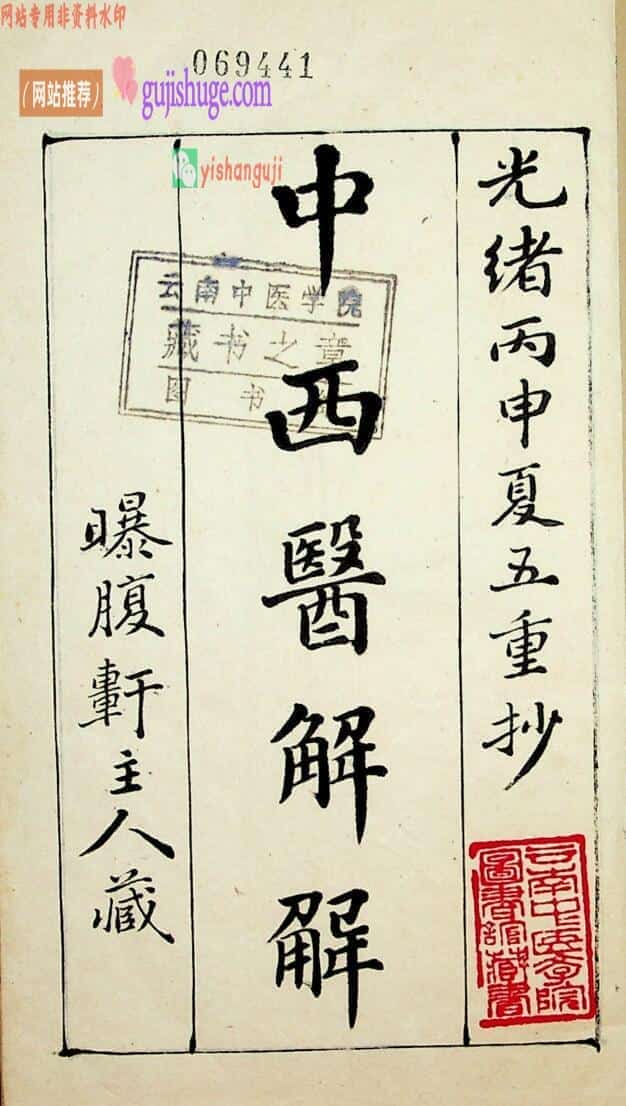 网站专用非资料水印
069441
(网站推荐)
gujishuge.com
yishanguji
光绪丙申夏五重抄
中西醫解解
曝腹軒主人藏
云南中医学院
藏书之章
图书
云南中医学院
圖書館藏書